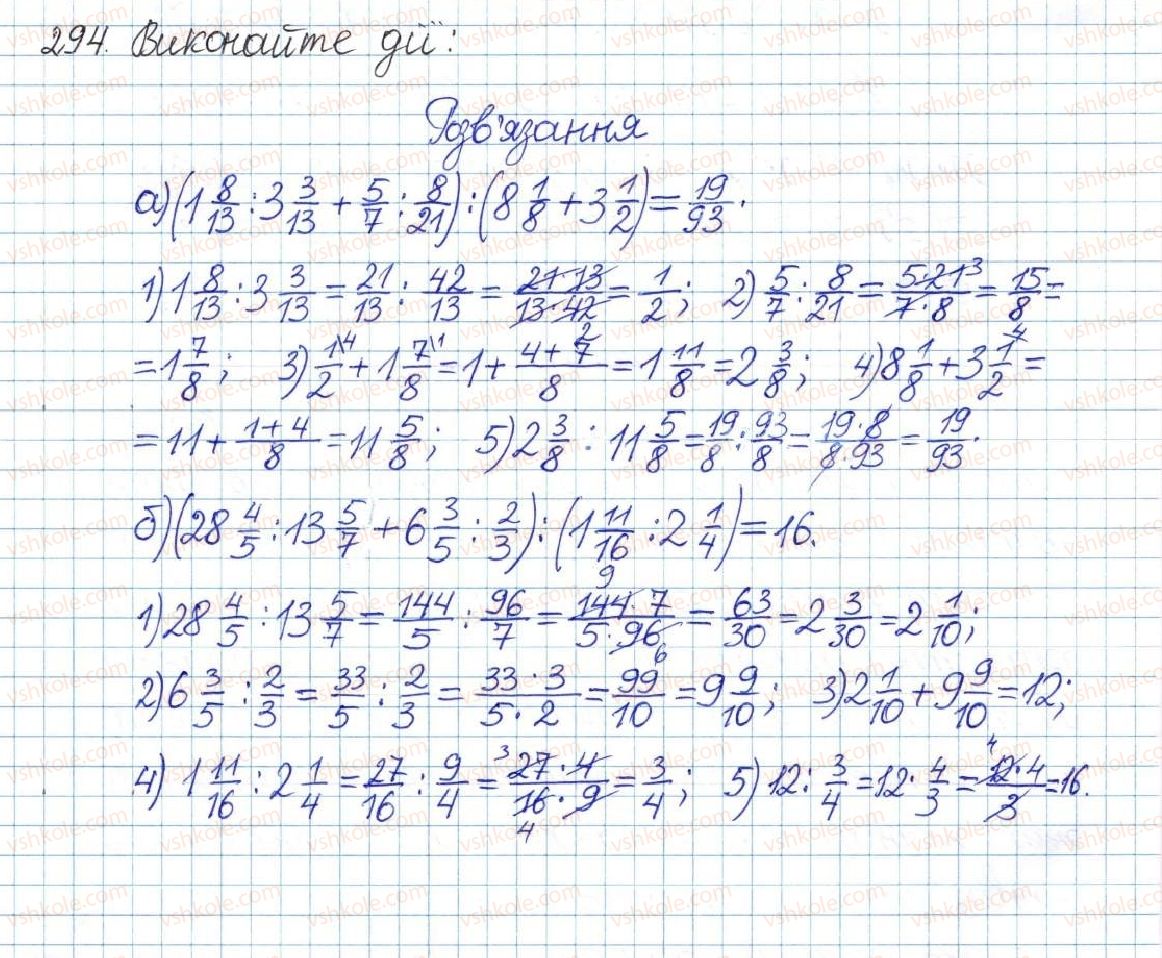 294. Виконайте дії:
Розв'язання
а) (1 8/13 : 3 3/13 + 5/7 : 8/21) : (8 1/8 + 3 1/2) = 19/93.
1) 1 8/13 : 3 3/13 = 21/13 : 42/13 = 21·13/13·42 = 1/2; 2) 5/7 : 8/21 = 5·21 3/7·8 = 15/8 =
= 1 7/8; 3) 1\4/2 + 1 7\1/8 = 1 + 4+7/8 = 1 11/8 = 2 3/8; 4) 8 1/8 + 3 1/2 =
= 11 + 1+4/8 = 11 5/8; 5) 2 3/8 : 11 5/8 = 19/8 : 93/8 = 19·8/8·93 = 19/93.
б) (28 4/5 : 13 5/7 + 6 3/5 : 2/3) : (1 11/16 : 2 1/4) = 16.
1) 28 4/5 : 13 5/7 = 144/5 : 96/7 = 9 144·7/5·96 6 = 63/30 = 2 3/30 = 2 1/10;
2) 6 3/5 : 2/3 = 33/5 : 2/3 = 33·3/5·2 = 99/10 = 9 9/10; 3) 2 1/10 + 9 9/10 = 12;
4) 1 11/16 : 2 1/4 = 27/16 : 9/4 = 3 27·4/16·9 4 = 3/4; 5) 12 : 3/4 = 12 · 4/3 = 4 12·4/3 = 16.